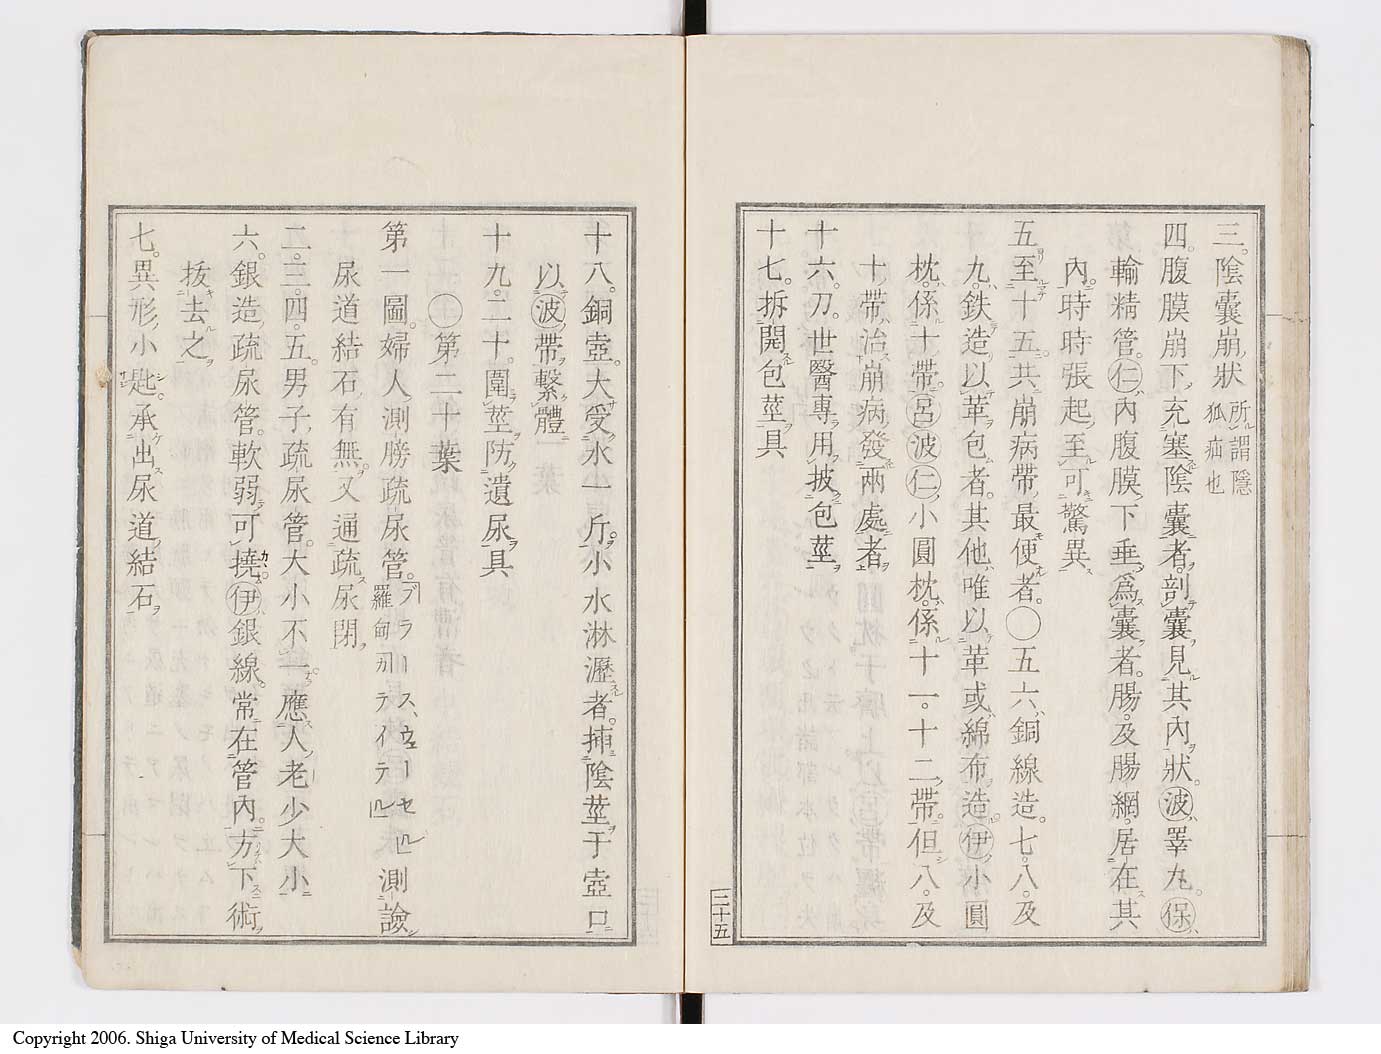 三。陰囊崩狀 所謂隱狐疝也
四。腹膜崩下。充塞陰囊者。剖囊。見其內狀。波睪丸。保
輸精管。仁內腹膜。下垂爲囊者。腸。及腸綱。居在其
內。時時張起。至可驚異
五至十五。共崩病帶。最便者。〇五六銅線造。七。八。及
九。鉄造。以革包者。其他唯以革或綿布造。伊小圓
枕。係十帶。呂波仁小圓枕。係十一。十二帶。但八。及
十帶治崩病發兩處者
十六。刀。世醫專用披包莖
十七。拆開包莖具
二十五
十八。銅壺。大受水一斤。小水淋瀝者。挿陰莖于壺口
以波帶繫體
十九。二十。圍莖防遺尿具
〇第二十葉
第一圖。婦人測勝疏尿管。ブラースウェーセル羅甸カテイテル測譣
尿道結石有無。又通疏尿閉
二。三。四。五。男子疏尿管。大小不一。應人老少大小
六。銀造疏尿管。軟弱可撓。伊銀線。常在管內。方下術
拔去之
七。異形小匙。承出尿道結石
Copyright 2006. Shiga University of Medical Science Library